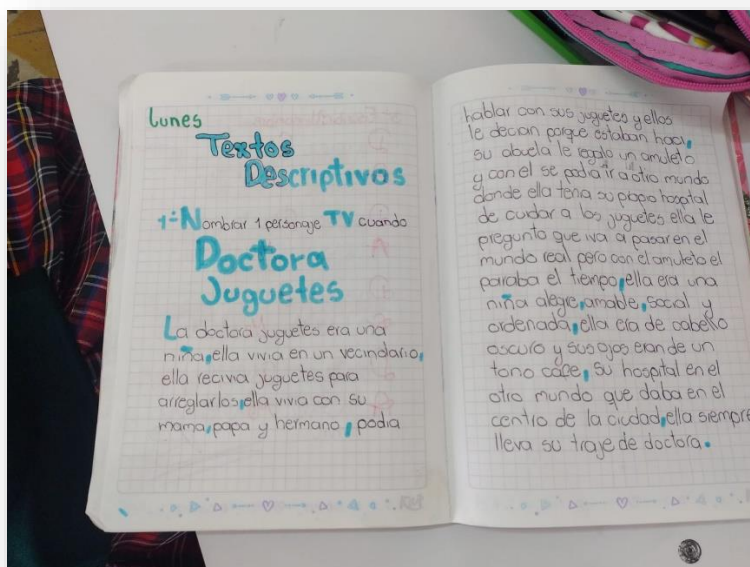 Lunes
Textos
Descriptivos
1- Nombrar 1 personaje TV cuando
Doctora
Juguetes
La doctora juguetes era una
niña, ella vivia en un vecindario,
ella recivia juguetes para
arreglarlos, ella vivia con su
mama, papa y hermano, podia
hablar con sus juguetes y ellos
le decian porque estaban haci,
su abuela le regalo un amuleto
y con el se podia ir a otro mundo
donde ella tenia su propio hospital
de cuidar a los juguetes ella le
pregunto que iva a pasar en el
mundo real pero con el amuleto el
paraba el tiempo, ella era una
niña alegre, amable, social y
ordenada, ella era de cabello
oscuro y sus ojos eran de un
tono cafe, su hospital en el
otro mundo que daba en el
centro de la ciudad, ella siempre
lleva su traje de doctora.